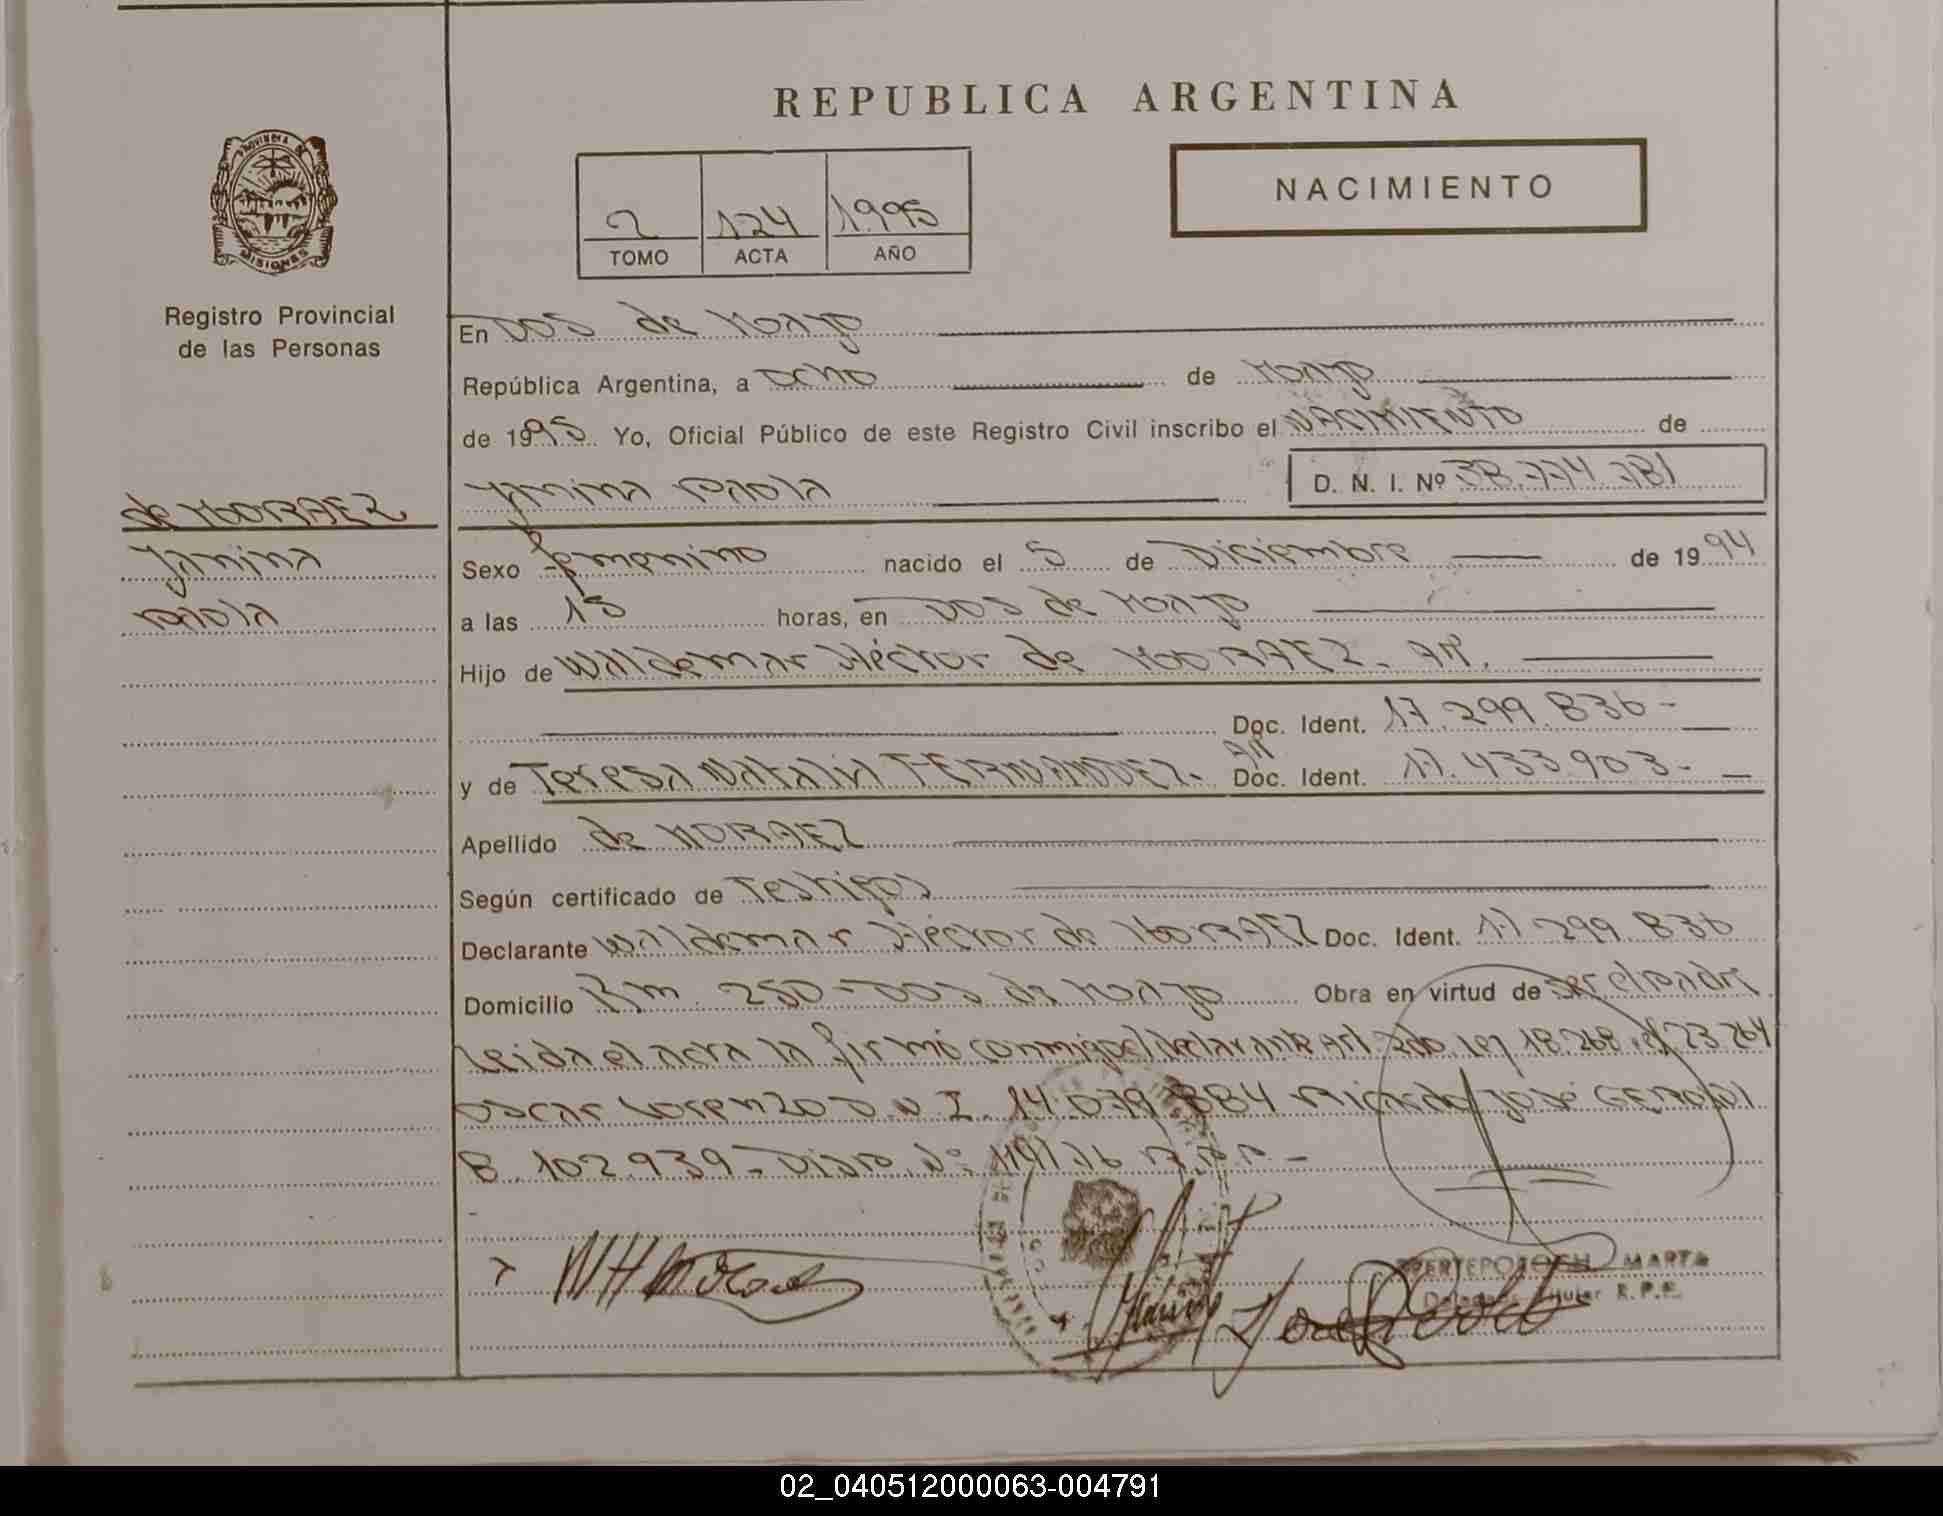 REPUBLICA ARGENTINA
PROVINCIA DE
MISIONES
Registro Provincial
de las Personas
2 124 1995
TOMO ACTA AÑO
NACIMIENTO
En DOS de Mayo
República Argentina, a OCHO de Mayo
de 1995 Yo, Oficial Público de este Registro Civil inscribo el NACIMIENTO de
Yanina PAOLA D. N. I. Nº 38.774.781
de MORAEZ
Yanina
PAOLA
Sexo femenino nacido el 5 de Diciembre de 1994
a las 15 horas, en DOS de Mayo
Hijo de Waldemar Héctor de MORAEZ. Ar.
Doc. Ident. 17.299.836-
y de Teresa Natalia FERNANDEZ. Ar Doc. Ident. 17.433.903-
Apellido de MORAEZ
Según certificado de Testigos
Declarante Waldemar Héctor de MORAEZ Doc. Ident. 17.299.836
Domicilio Km. 250 - DOS de Mayo Obra en virtud de ser el padre
Leida el acta la firmó conmigo el declarante Art. 2do. Ley 18.268. 23.264
Oscar Lorenzo D.N.I. 14.079.884 Ricardo José
8.102.939 - Dispo. Nº 119/76 R.P.P.-
MARTA
Delegada Titular R.P.P.
02_040512000063-004791